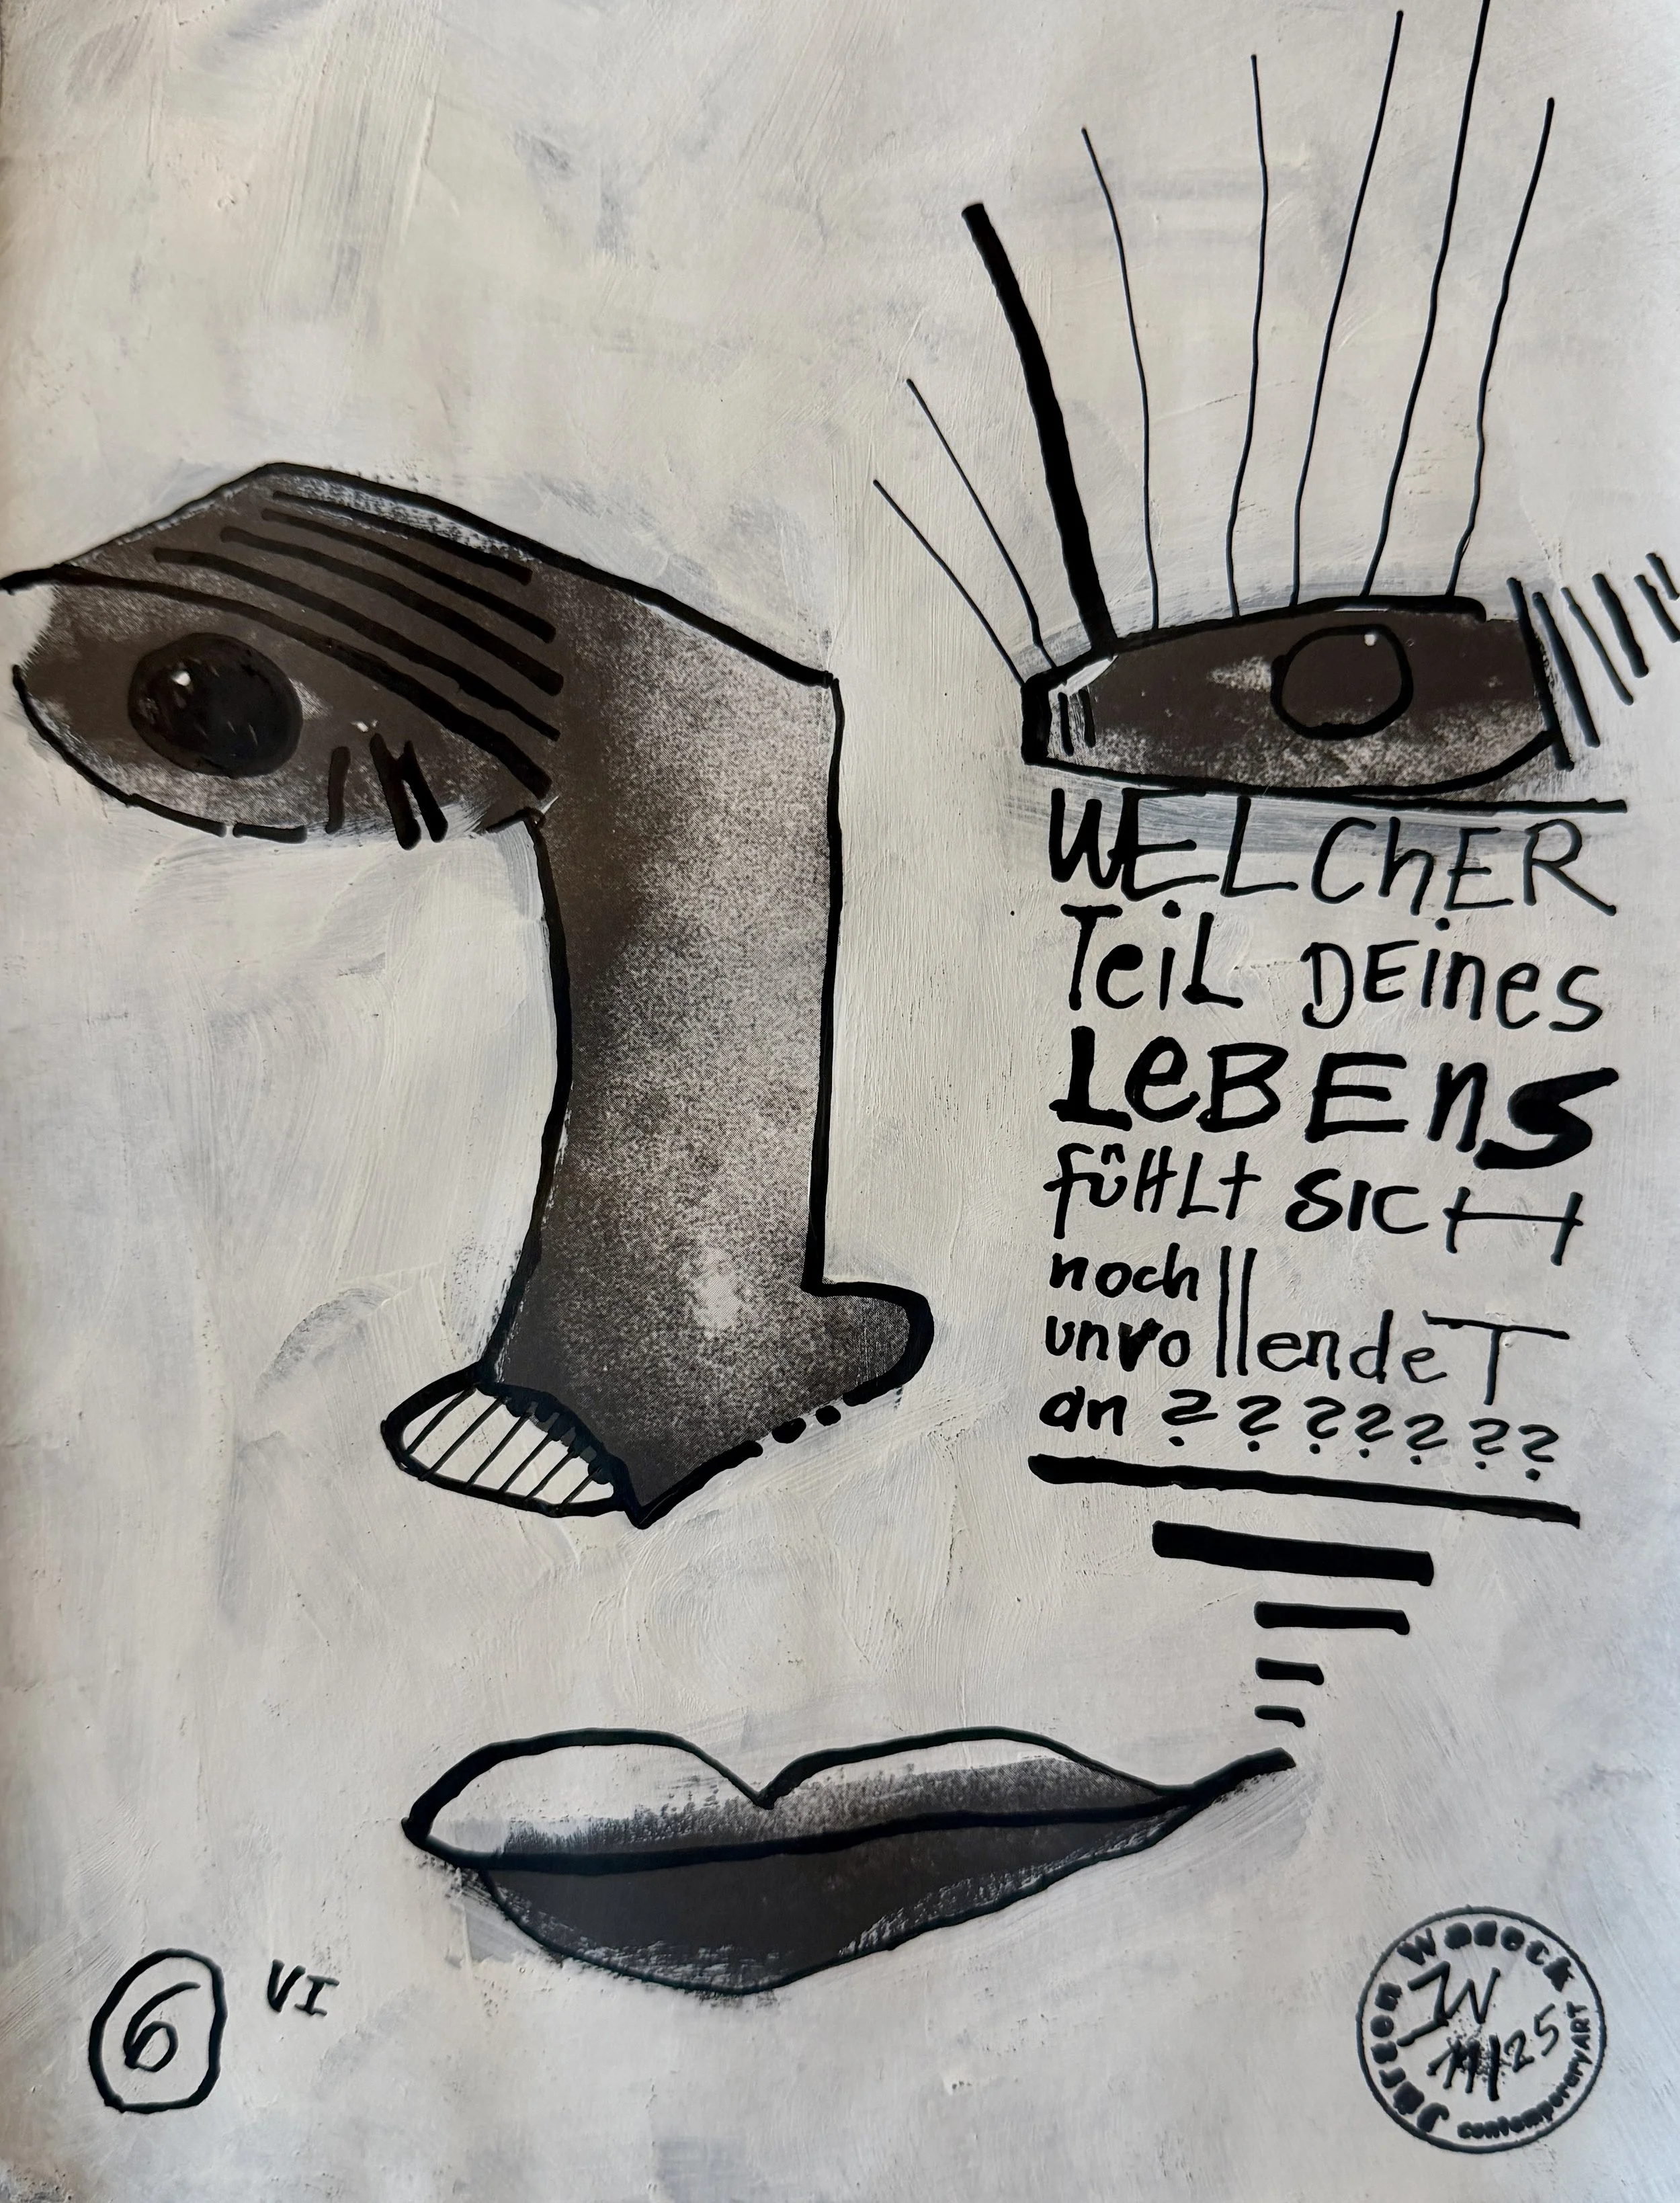 WELChER
TeiL DEines
LeBEnS
füHLt SICH
noch
unvollendeT
an ???????
6 VI
Jürgen Wadeck
JW
11/25
contemporary ART